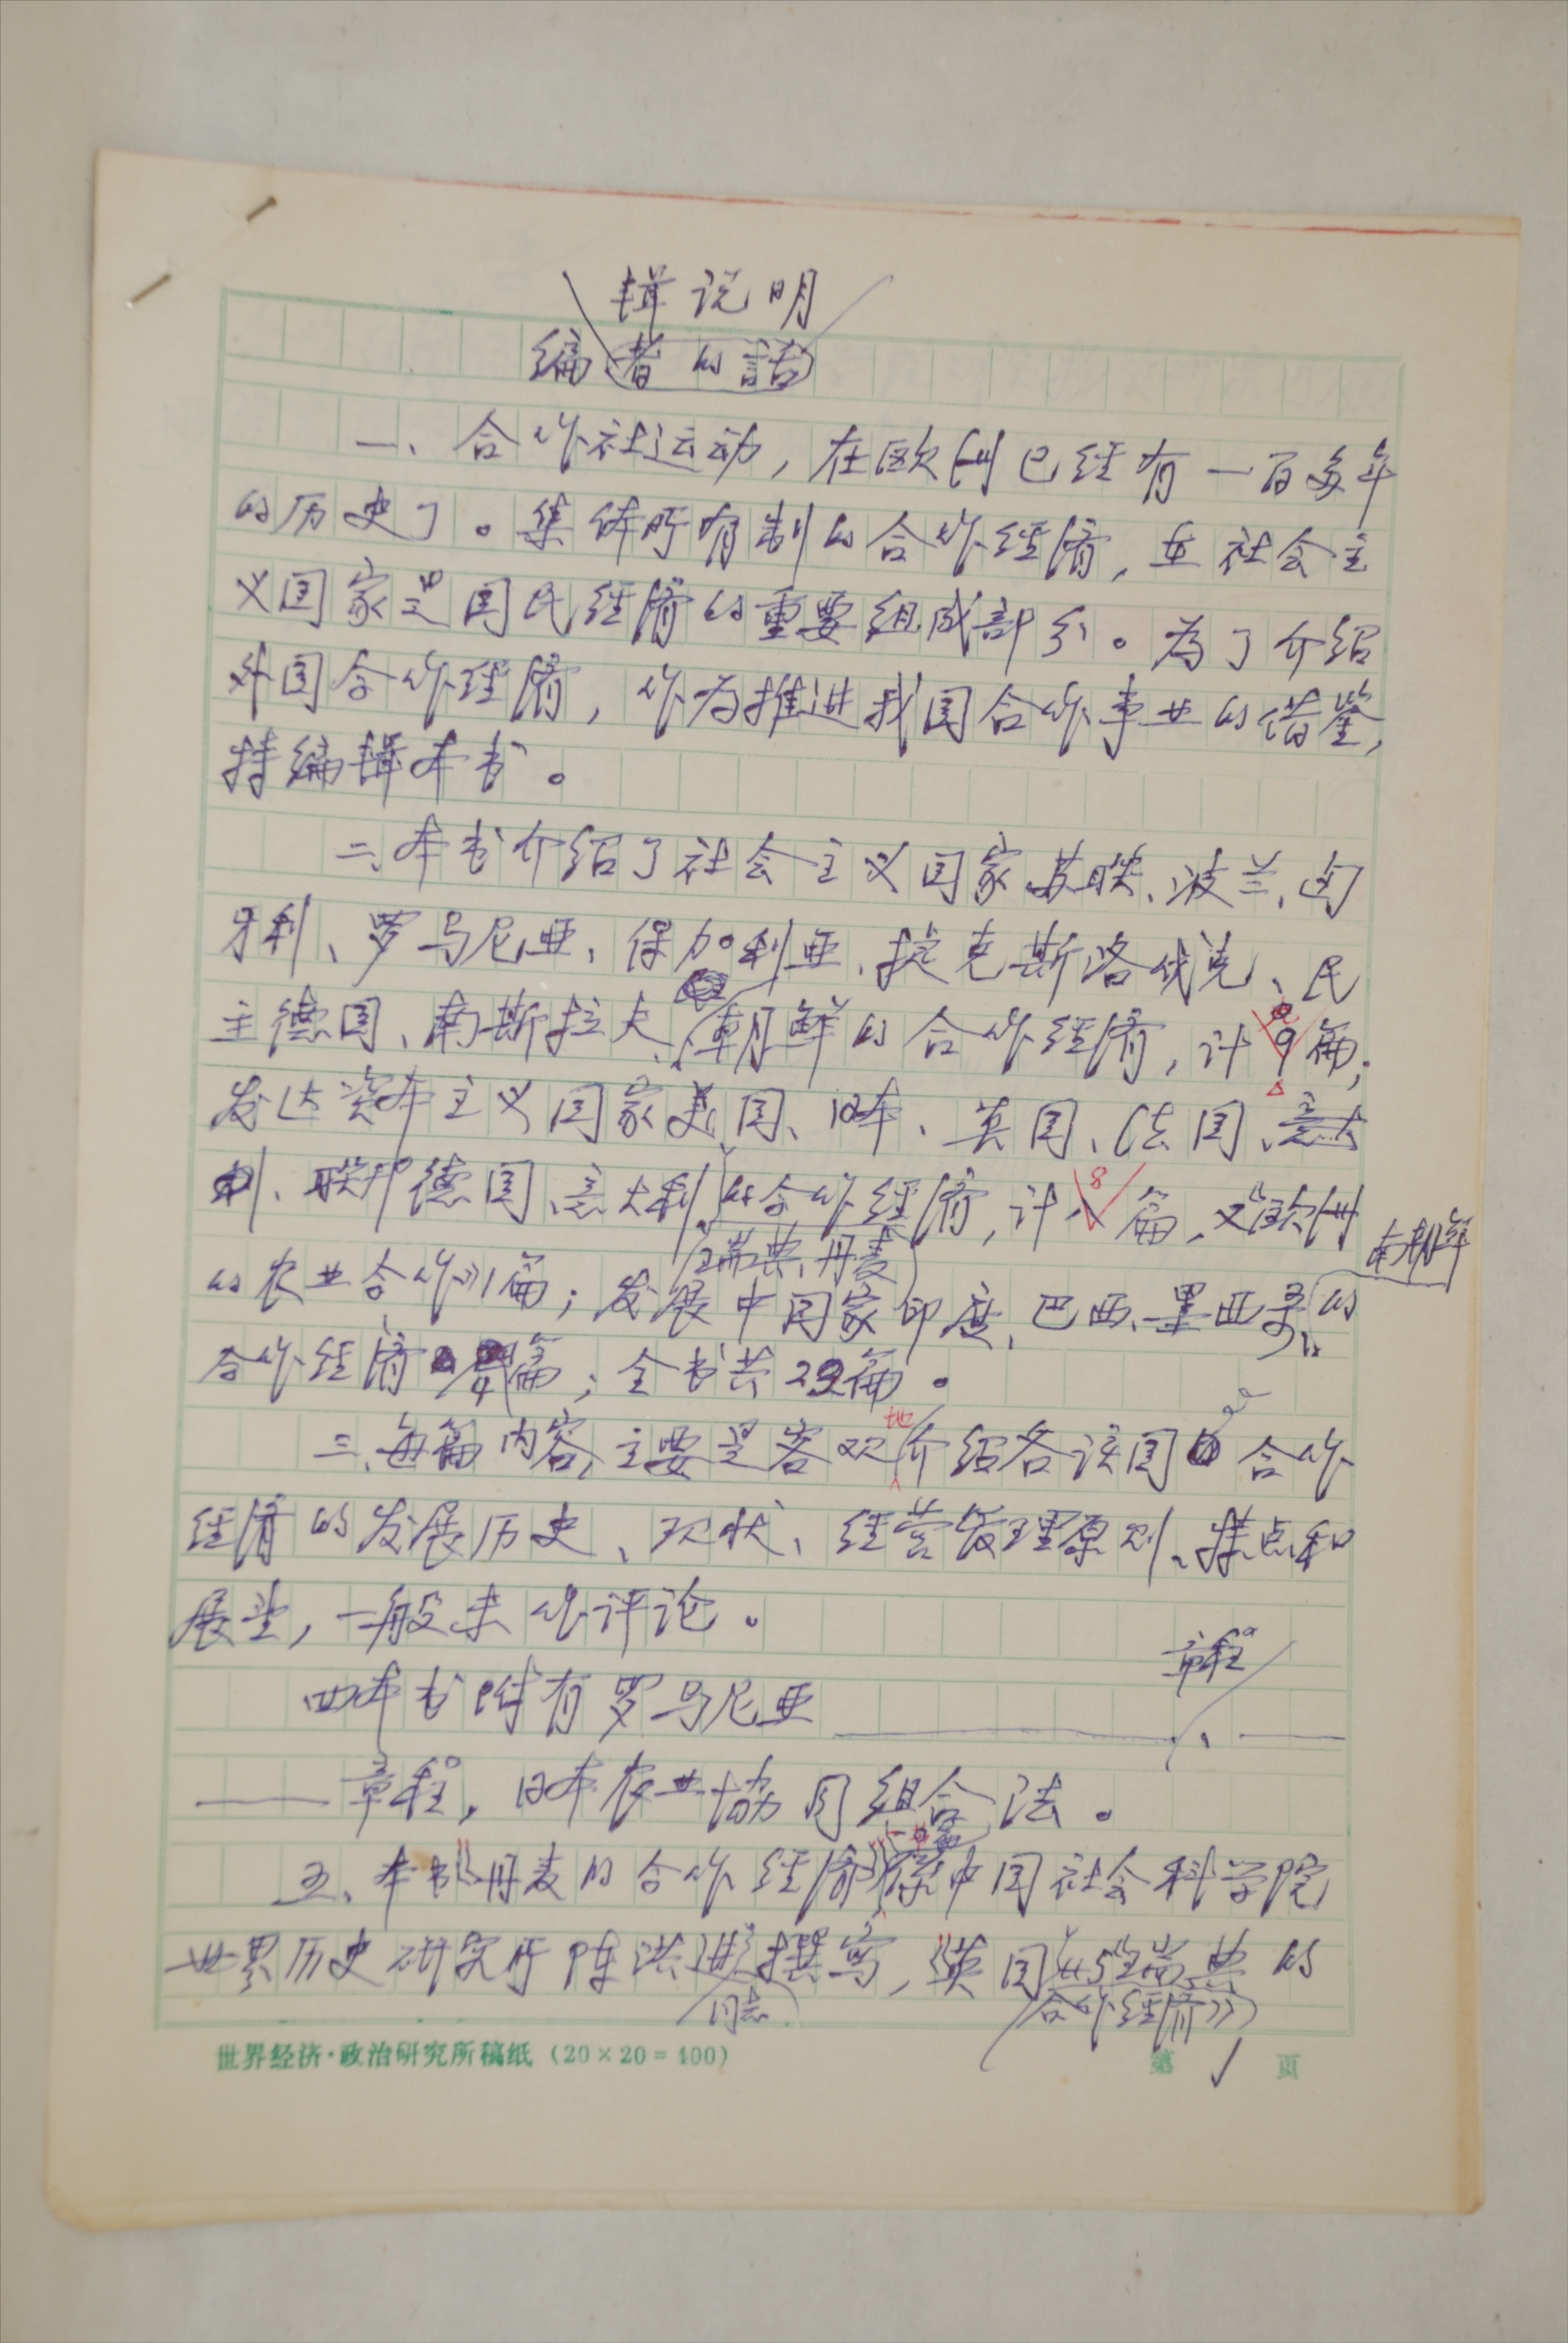 辑说明
编者的话
一、合作社运动，在欧州已经有一百多年
的历史了。集体所有制的合作经济，在社会主
义国家是国民经济的重要组成部分。为了介绍
外国合作经济，作为推进我国合作事业的借鉴，
特编辑本书。
二、本书介绍了社会主义国家苏联、波兰、匈
牙利、罗马尼亚、保加利亚、捷克斯洛伐克、民
主德国、南斯拉夫、朝鲜的合作经济，计9篇；
发达资本主义国家美国、日本、英国、法国、意大
利、联邦德国、意大利、的合作经济，计8篇，又《欧州
瑞典、丹麦
南朝鲜
的农业合作》1篇；发展中国家印度、巴西、墨亚哥、的
合作经济4篇；全书共22篇。
地
三、每篇内容，主要是客观介绍各该国合作
经济的发展历史、现状、经营管理原则、特点和
展望，一般未作评论。
章程
四本书附有罗马尼亚
章程，日本农业协同组合法。
一篇
五、本书《丹麦的合作经济》系中国社会科学院
世界历史研究所陈洪进撰写，《英国》与《瑞典的
同志
合作经济》》
世界经济·政治研究所稿纸（20×20=400）
第 1 页